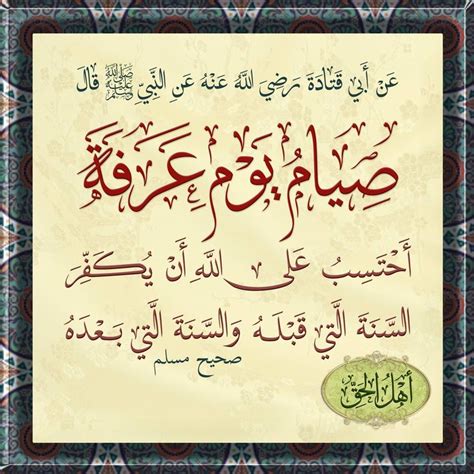 عَنْ أَبِي قَتَادَةَ رَضِيَ اللَّهُ عَنْهُ عَنِ النَّبِيِّ ﷺ قَالَ
صِيَامُ يَوْمِ عَرَفَةَ
أَحْتَسِبُ عَلَى اللَّهِ أَنْ يُكَفِّرَ
السَّنَةَ الَّتِي قَبْلَهُ وَالسَّنَةَ الَّتِي بَعْدَهُ
صحيح مسلم
أَهْلُ الحَقِّ